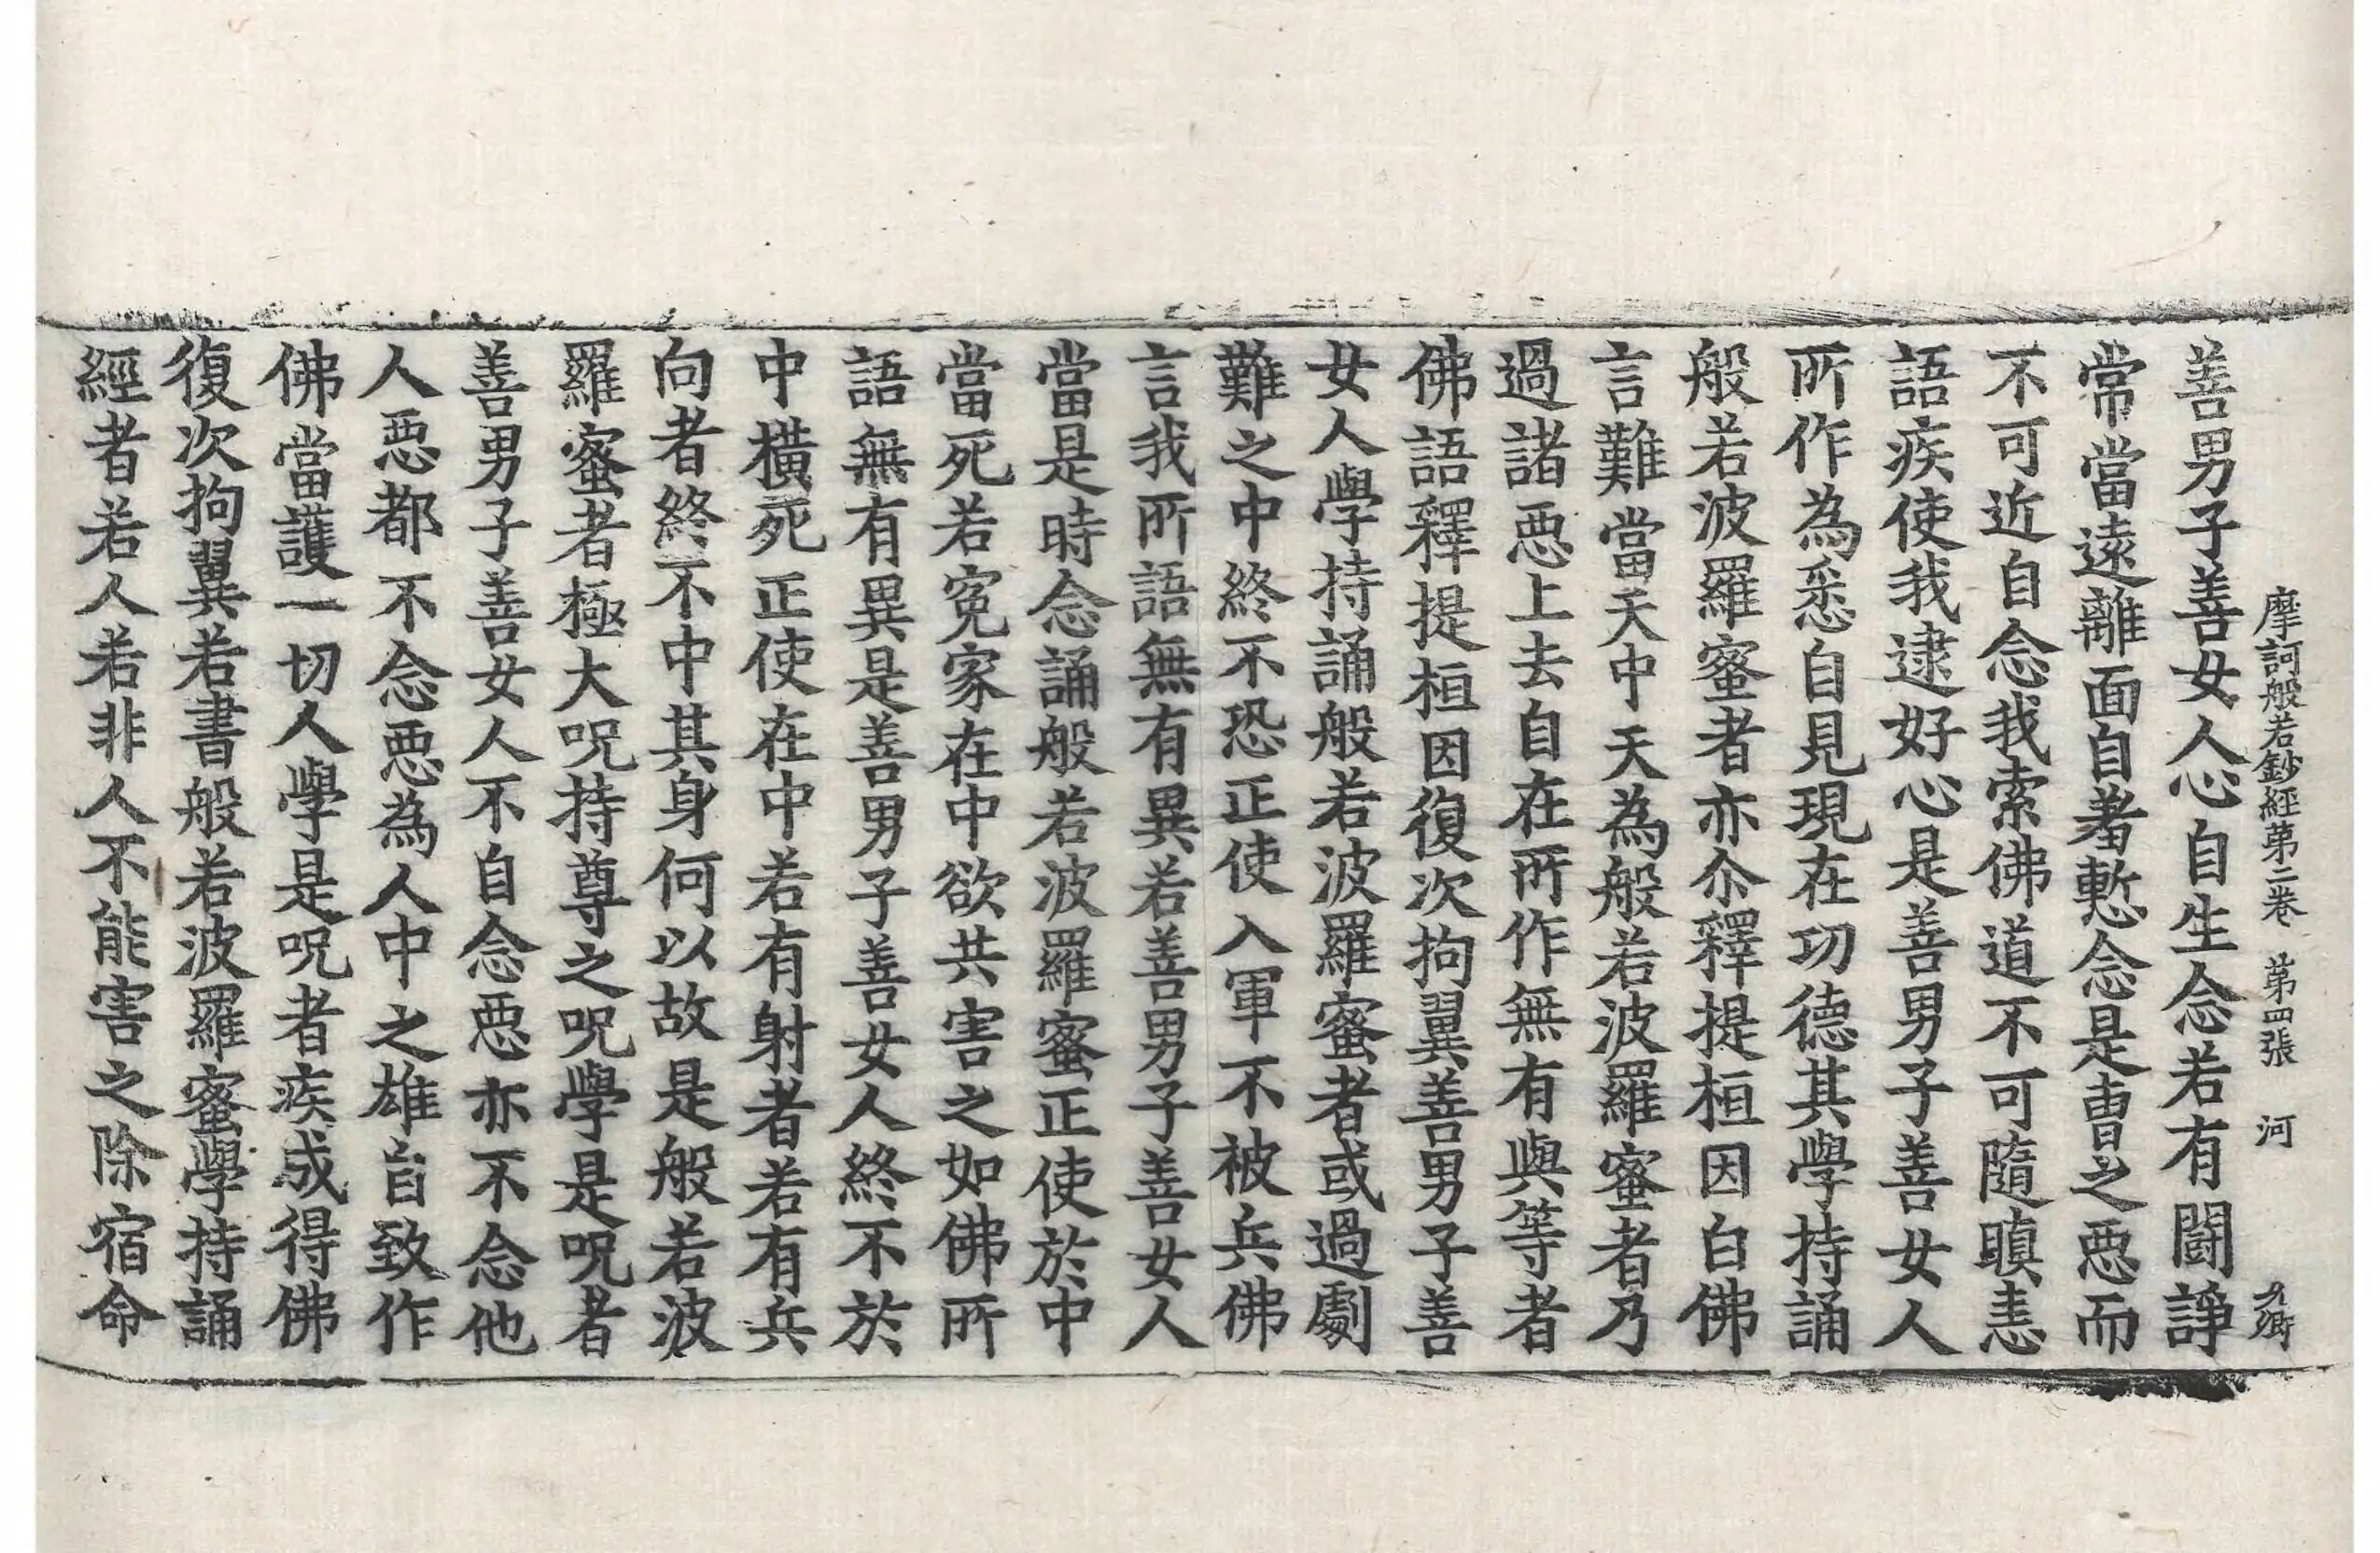 摩訶般若鈔經第二卷 第四張 河
善男子善女人心自生念若有鬪諍
常當遠離面自羞慙念是曺之惡而
不可近自念我索佛道不可隨瞋恚
語疾使我逮好心是善男子善女人
所作為悉自見現在功德其學持誦
般若波羅蜜者亦尒釋提桓因白佛
言難當天中天為般若波羅蜜者乃
過諸惡上去自在所作無有與等者
佛語釋提桓因復次拘翼善男子善
女人學持誦般若波羅蜜者或過劇
難之中終不恐正使入軍不被兵佛
言我所語無有異若善男子善女人
當是時念誦般若波羅蜜正使於中
當死若寃家在中欲共害之如佛所
語無有異是善男子善女人終不於
中橫死正使在中若有射者若有兵
向者終不中其身何以故是般若波
羅蜜者極大呪持尊之呪學是呪者
善男子善女人不自念惡亦不念他
人惡都不念惡為人中之雄自致作
佛當護一切人學是呪者疾成得佛
復次拘翼若書般若波羅蜜學持誦
經者若人若非人不能害之除宿命